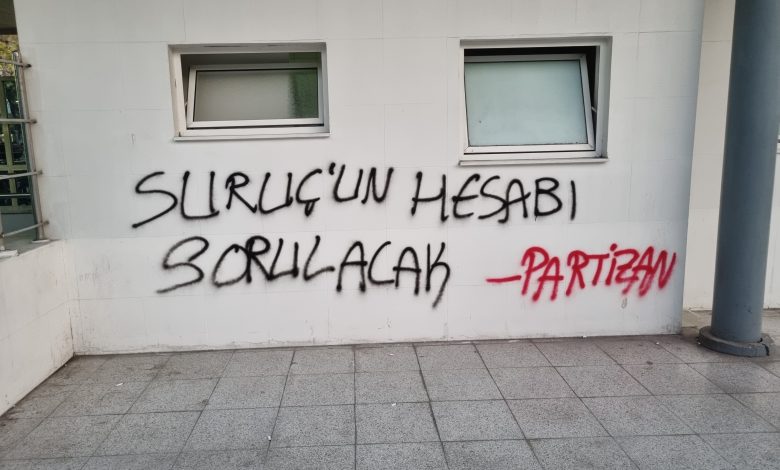 SURUÇ'UN HESABI
SORULACAK -PARTİZAN